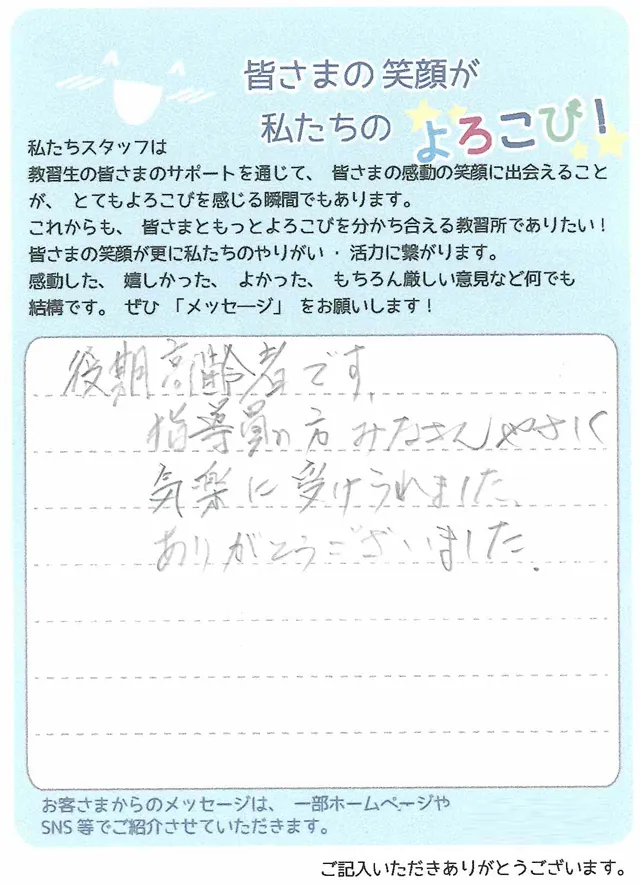 皆さまの笑顔が
私たちの よろこび！
私たちスタッフは
教習生の皆さまのサポートを通じて、 皆さまの感動の笑顔に出会えること
が、 とてもよろこびを感じる瞬間でもあります。
これからも、 皆さまともっとよろこびを分かち合える教習所でありたい！
皆さまの笑顔が更に私たちのやりがい・活力に繋がります。
感動した、 嬉しかった、 よかった、 もちろん厳しい意見など何でも
結構です。 ぜひ 「メッセージ」 をお願いします！
後期高齢者です、
指導員の方 みなさんやさしく
気楽に受けられました、
ありがとうございました.
お客さまからのメッセージは、 一部ホームページや
SNS 等でご紹介させていただきます。
ご記入いただきありがとうございます。